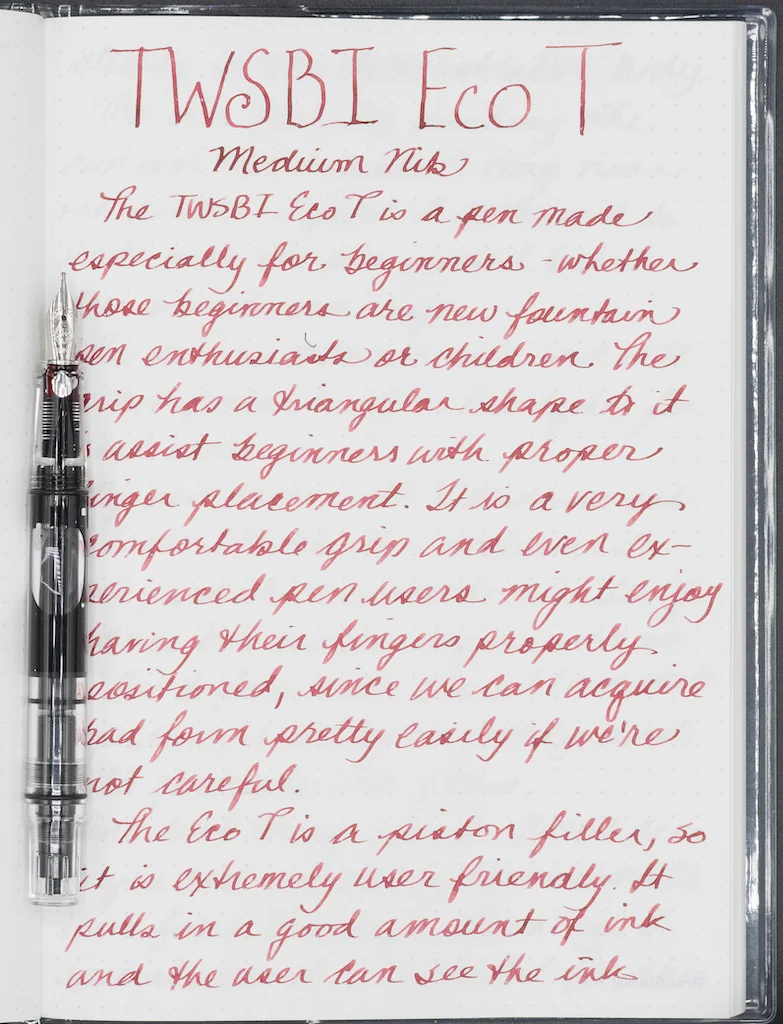 TWSBI Eco T
Medium Nib
The TWSBI Eco T is a pen made
especially for beginners - whether
those beginners are new fountain
pen enthusiasts or children. The
grip has a triangular shape to it
assist beginners with proper
finger placement. It is a very
comfortable grip and even ex-
perienced pen users might enjoy
having their fingers properly
positioned, since we can acquire
bad form pretty easily if we're
not careful.
The Eco T is a piston filler, so
it is extremely user friendly. It
pulls in a good amount of ink
and the user can see the ink